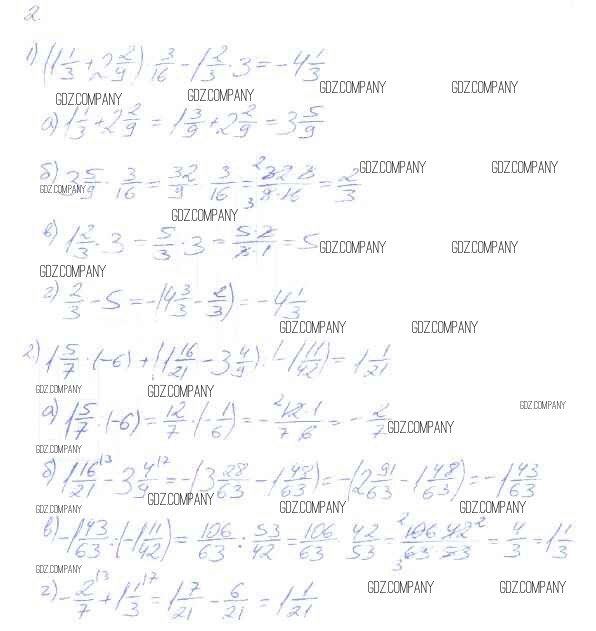 2.
1) (1 1/3 + 2 2/9) · 3/16 - 1 2/3 · 3 = -4 1/3
GDZ.COMPANY GDZ.COMPANY
GDZ.COMPANY GDZ.COMPANY
а) 1 1/3 + 2 2/9 = 1 3/9 + 2 2/9 = 3 5/9
GDZ.COMPANY GDZ.COMPANY
б) 3 5/9 · 3/16 = 32/9 · 3/16 = = 2/3
GDZ.COMPANY
GDZ.COMPANY
в) 1 2/3 · 3 = 5/3 · 3 = = 5
GDZ.COMPANY GDZ.COMPANY
GDZ.COMPANY
г) 2/3 - 5 = -(4 3/3 - 2/3) = -4 1/3
GDZ.COMPANY GDZ.COMPANY
2) 1 5/7 · (-6) + (1 16/21 - 3 4/9) · (-1 11/42) = 1 1/21
GDZ.COMPANY GDZ.COMPANY
GDZ.COMPANY
а) 1 5/7 · (-6) = 12/7 · (-1/6) = - 12·1/7·6 = - 2/7
GDZ.COMPANY
GDZ.COMPANY
б) 1 16/21 - 3 4/9 = -(3 28/63 - 1 48/63) = -(2 91/63 - 1 48/63) = -1 43/63
GDZ.COMPANY GDZ.COMPANY GDZ.COMPANY
GDZ.COMPANY
в) -1 43/63 : (-1 11/42) = 106/63 : 53/42 = 106/63 · 42/53 = 106·42/63·53 = 4/3 = 1 1/3
GDZ.COMPANY
г) -2/7 + 1 1/3 = 1 7/21 - 6/21 = 1 1/21
GDZ.COMPANY GDZ.COMPANY